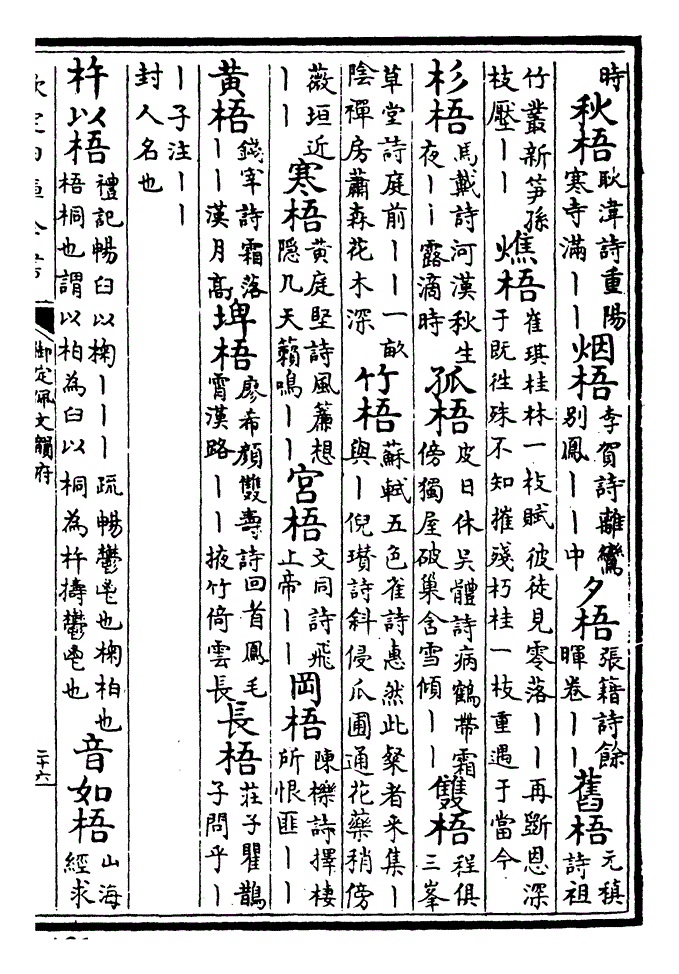 時 秋梧 耿湋詩重陽寒寺滿丨丨 烟梧 李賀詩離鸞別鳳丨丨中 夕梧 張籍詩餘暉卷丨丨 舊梧 元稹詩祖
竹叢新笋孫枝壓丨丨 燋梧 崔琪桂林一枝賦彼徒見零落丨丨再斲恩深于既徃殊不知摧殘朽桂一枝重遇于當今
杉梧 馬戴詩河漢秋生夜丨丨露滴時 孤梧 皮日休吳體詩病鶴帶霜傍獨屋破巢含雪傾丨丨 雙梧 程俱三峯
草堂詩庭前丨丨一畝陰禪房蕭森花木深 竹梧 蘇軾五色雀詩惠然此粲者来集丨與丨倪瓚詩斜侵瓜圃通花藥稍傍
薇垣近丨丨 寒梧 黄庭堅詩風簾想隠几天籟鳴丨丨 宫梧 文同詩飛上帝丨丨 岡梧 陳櫟詩擇棲所恨匪丨丨
黄梧 錢宰詩霜落丨丨漢月高 埤梧 廖希顔雙壽詩回首鳳毛霄漢路丨丨掖竹倚雲長 長梧 莊子瞿鵲子問乎丨
丨子注丨丨封人名也
杵以梧 禮記暢臼以椈丨丨丨疏暢鬱鬯也椈柏也梧桐也謂以柏為臼以桐為杵擣鬱鬯也 音如梧 山海經求
欽定四庫全書 御定佩文韻府 二十六